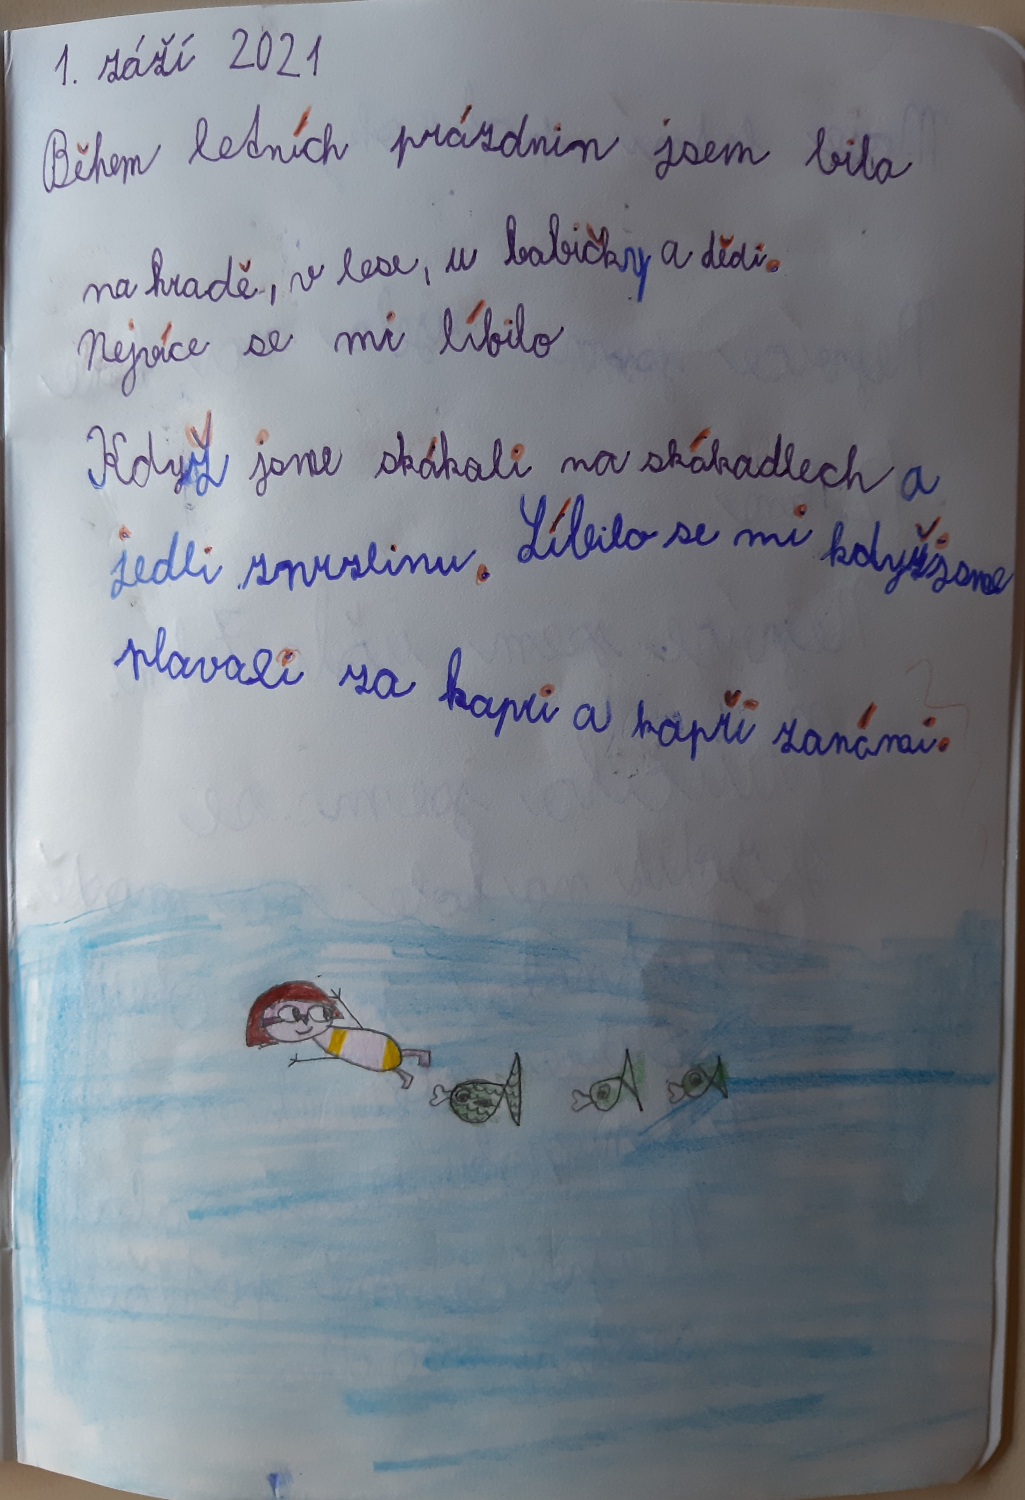 1. září 2021
Během letních prázdnin jsem bila
na hradě, v lese, u babičky a dědi.
Nejvíce se mi líbilo
Když jsme skákali na skákadlech a
jedli zmrzlinu. Líbilo se mi když jsme
plavali za kapri a kapři zanámi.